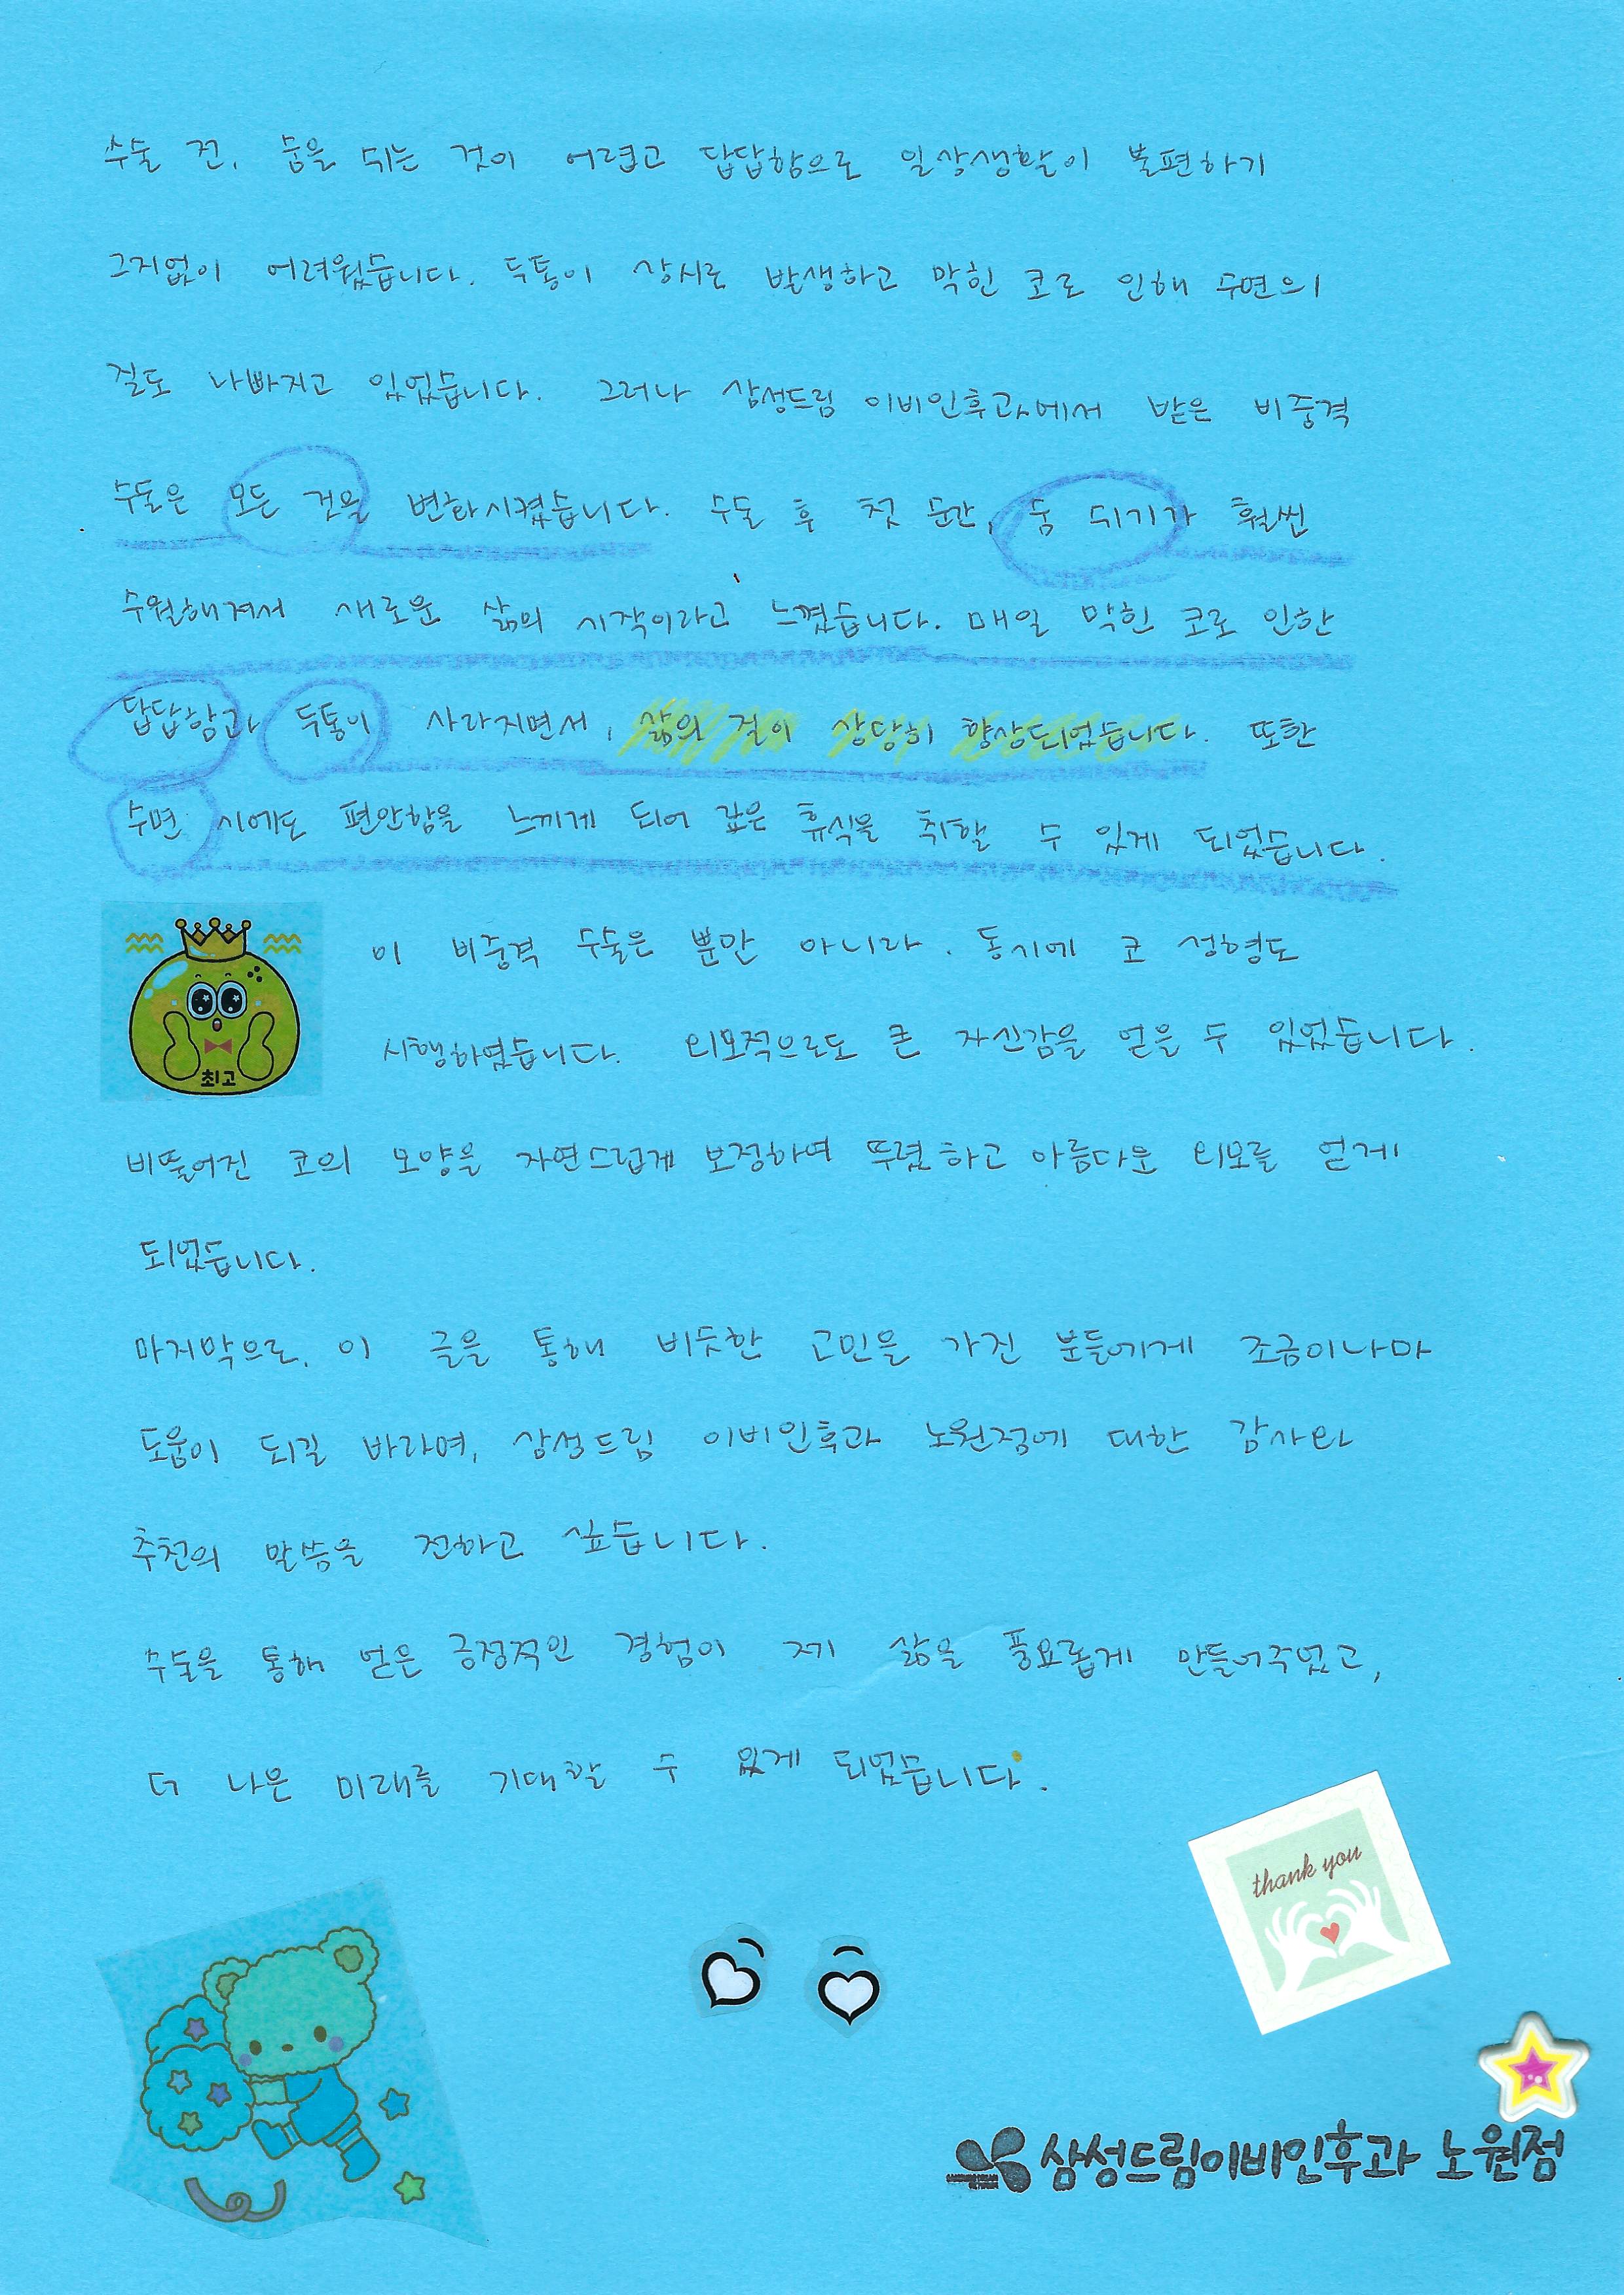 수술 전, 숨을 쉬는 것이 어렵고 답답함으로 일상생활이 불편하기
그지없이 어려웠습니다. 두통이 상시로 발생하고 막힌 코로 인해 수면의
질도 나빠지고 있었습니다. 그러나 삼성드림 이비인후과에서 받은 비중격
수술은 모든 것을 변화시켰습니다. 수술 후 첫 순간, 숨 쉬기가 훨씬
수월해져서 새로운 삶의 시작이라고 느꼈습니다. 매일 막힌 코로 인한
답답함과 두통이 사라지면서, 삶의 질이 상당히 향상되었습니다. 또한
수면 시에도 편안함을 느끼게 되어 깊은 휴식을 취할 수 있게 되었습니다.
이 비중격 수술은 뿐만 아니라. 동시에 코 성형도
시행하였습니다. 외모적으로도 큰 자신감을 얻을 수 있었습니다.
최고
비뚤어진 코의 모양을 자연스럽게 보정하여 뚜렷하고 아름다운 외모를 얻게
되었습니다.
마지막으로, 이 글을 통해 비슷한 고민을 가진 분들에게 조금이나마
도움이 되길 바라며, 삼성드림 이비인후과 노원점에 대한 감사와
추천의 말씀을 전하고 싶습니다.
수술을 통해 얻은 긍정적인 경험이 제 삶을 풍요롭게 만들어주었고,
더 나은 미래를 기대할 수 있게 되었습니다.
thank you
삼성드림이비인후과 노원점